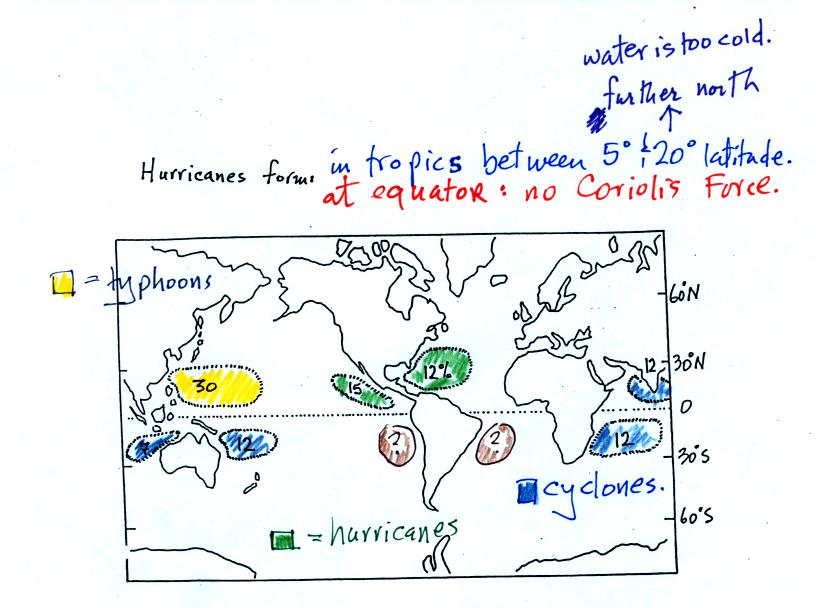 water is too cold.
further north
↑
Hurricanes form in tropics between 5° & 20° latitude.
at equator : no Coriolis Force.
= typhoons
60°N
30°N
12
12%
30
15
0
7
12
?
?
12
30°S
cyclones.
60°S
= hurricanes